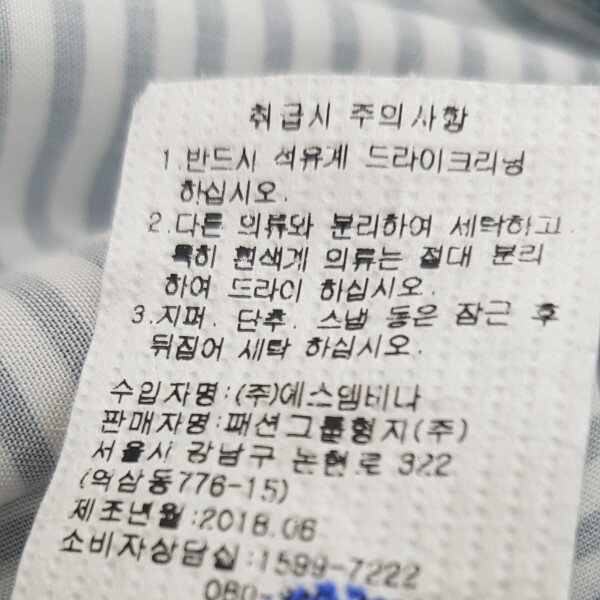 취급시 주의사항
1.반드시 석유계 드라이크리닝
하십시오.
2.다른 의류와 분리하여 세탁하고.
특히 흰색계 의류는 절대 분리
하여 드라이 하십시오.
3.지퍼. 단추. 스냅 등은 잠근 후
뒤집어 세탁 하십시오.
수입자명:(주)에스엠비나
판매자명:패션그룹형지(주)
서울시 강남구 논현로 322
(역삼동776-15)
제조년월:2018.06
소비자상담실:1599-7222
080-